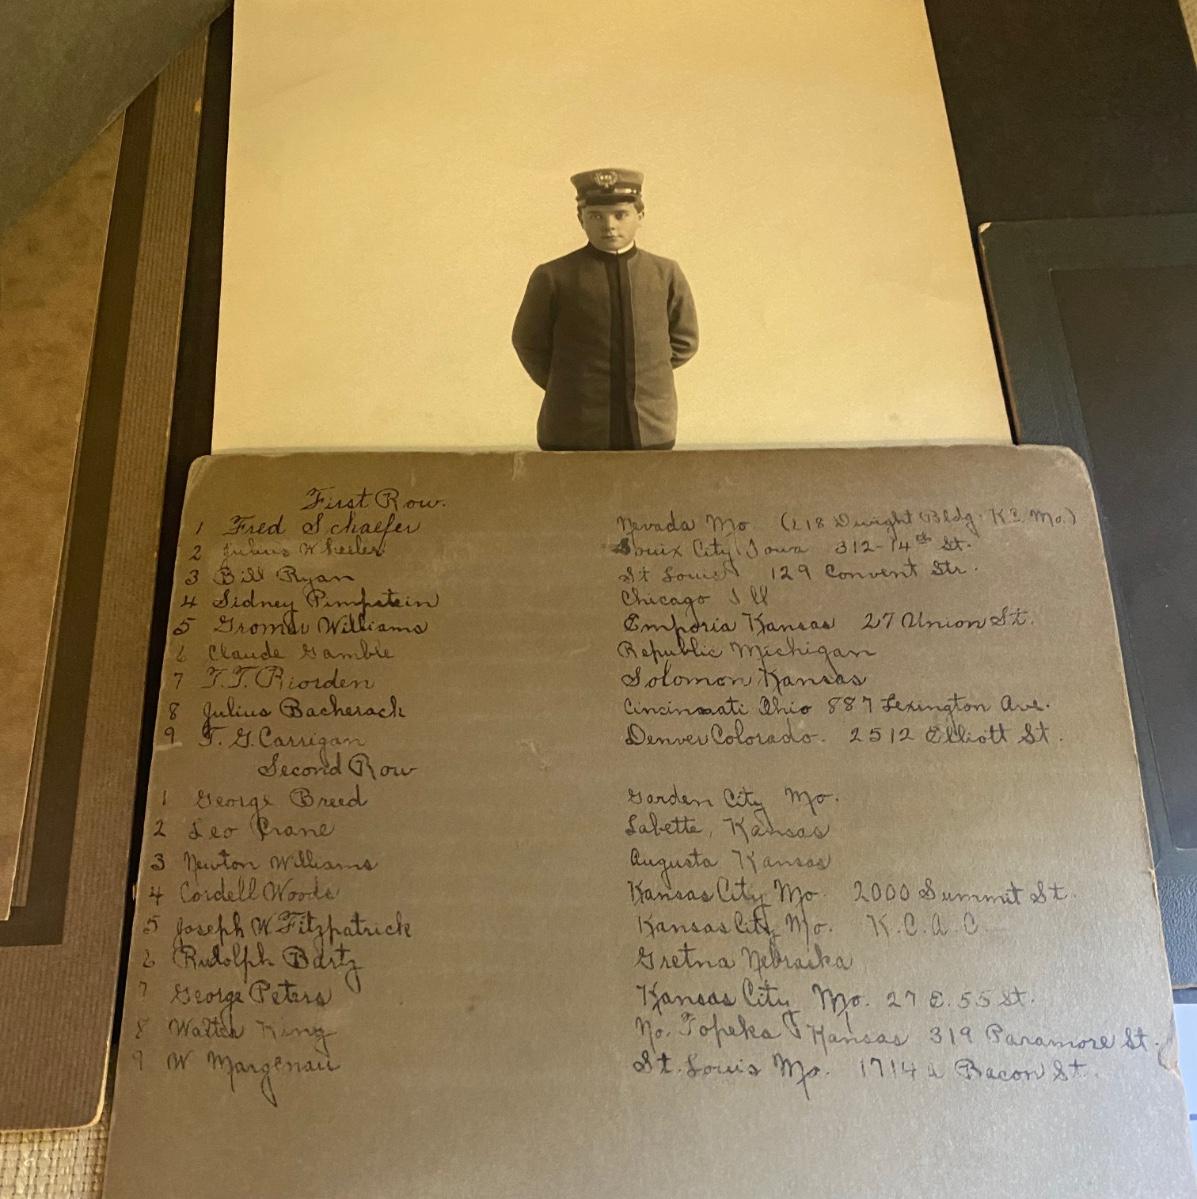 First Row.
1 Fred Schaefer Nevada Mo (218 Dwight Bldg. K.C. Mo.)
2 Julius Wheeler Souix City Iowa 312-14th St.
3 Bill Ryan St Louis 129 Convent Str.
4 Sidney Pimpstein Chicago Ill
5 Williams Emporia Kansas 27 Union St.
6 Claude Gamble Republic Michigan
7 T.T. Riorden Solomon Kansas
8 Julius Bacherach Cincinnati Ohio 887 Lexington Ave.
9 T. G. Carrigan Denver Colorado. 2512 Elliott St.
Second Row
1 George Breed Garden City Mo.
2 Leo Crane Labette, Kansas
3 Newton Williams Augusta Kansas
4 Cordell Woods Kansas City Mo. 2000 Summit St.
5 Joseph W Fitzpatrick Kansas City Mo. K.C.A.C.
6 Rudolph Bartz Gretna Nebraska
7 George Peters Kansas City Mo. 27 E. 55 St.
8 Walter King No. Topeka Kansas 319 Paramore St.
9 W Margenau St. Louis Mo. 1714 a Bacon St.